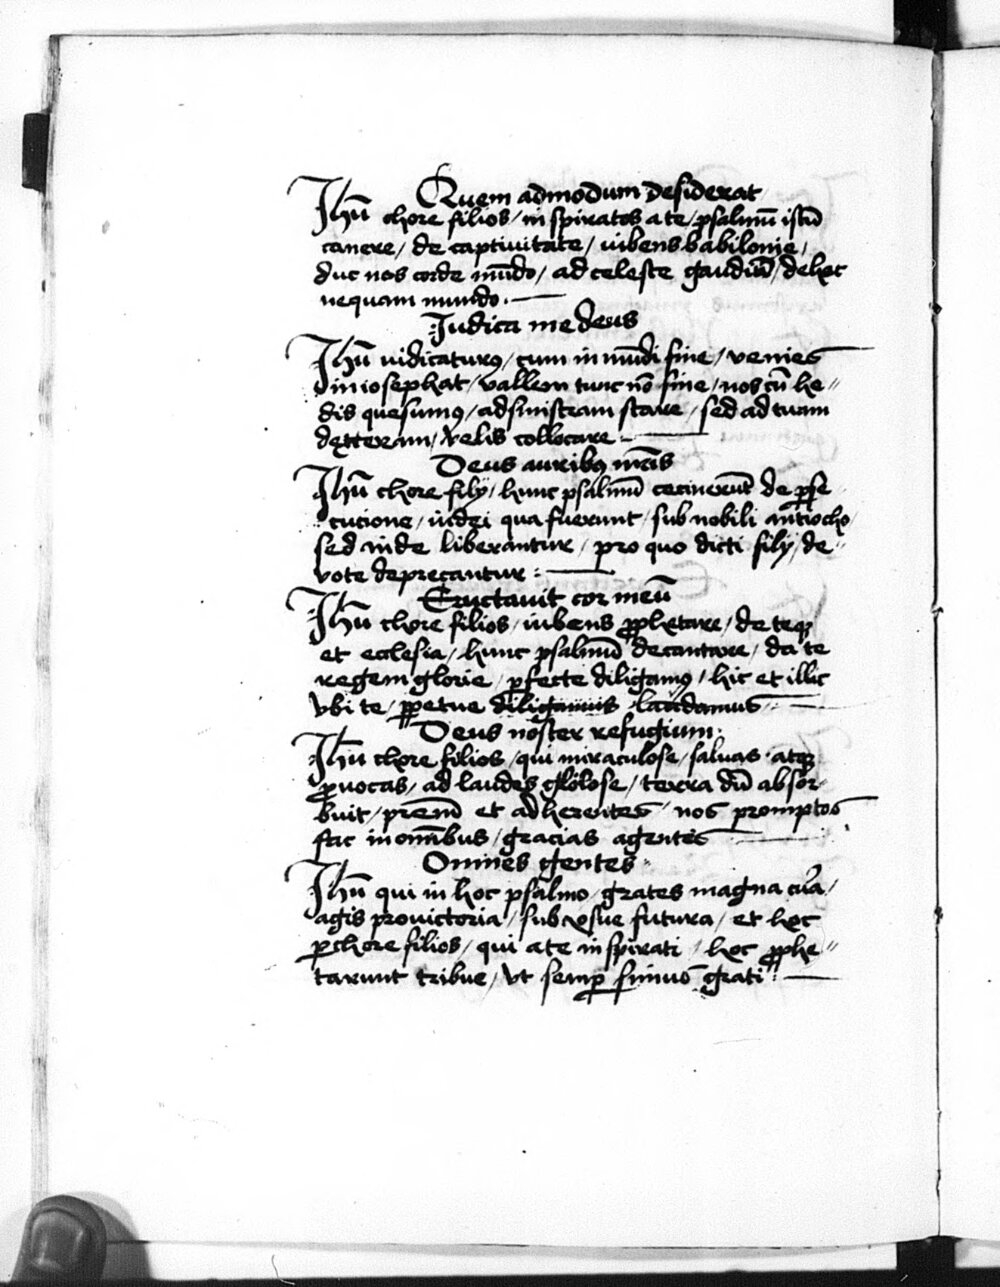 Quem admodum desiderat
Jhū chore filios / in spiratos a te / psalmū istū
canere / de captiuitate / uibens babilonie /
duc nos corde mūdo / ad celeste gaudiū / de hoc
nequam mundo .
Judica me deus
Jhū iudicaturꝰ / cum in mūdi fine / venies
in iosephat / vallem tunc nō sine / nos cū he〃
dis quesumꝰ / ad sinistram stare / sed ad tuam
dexteram / velis collocare
Deus auribꝰ nr̄is
Jhū chore filÿ / hunc psalmū cecinerūt de ꝑse
cucione / iudei qua fuerunt / sub nobili antiocho /
sed inde liberantur / pro quo dicti filÿ / de〃
vote deprecantur :
Eructauit cor meū
Jhū chore filios / iubens ꝓphetare / de teqꝫ
et ecclesia / hunc psalmū decantare / da te
regem glorie / ꝑfecte diligamꝰ / hic et illic
vbi te / ꝑpetue diligamus laudamus
Deus noster refugium .
Jhū chore filios / qui miraculose / saluas atqꝫ
ꝓuocas / ad laudes gloīose / terra dū absor〃
buit / prēm et adherentes / nos promptos
fac in om̄ibus / gracias agentes
Omnes gentes
Jhū qui in hoc psalmo / grates magna cura /
agis pro victoria / sub iosue futura / et hoc
ꝑ chore filios / qui a te in spirati / hoc ꝓphe〃
tarunt tribue / vt semꝑ simus grati :